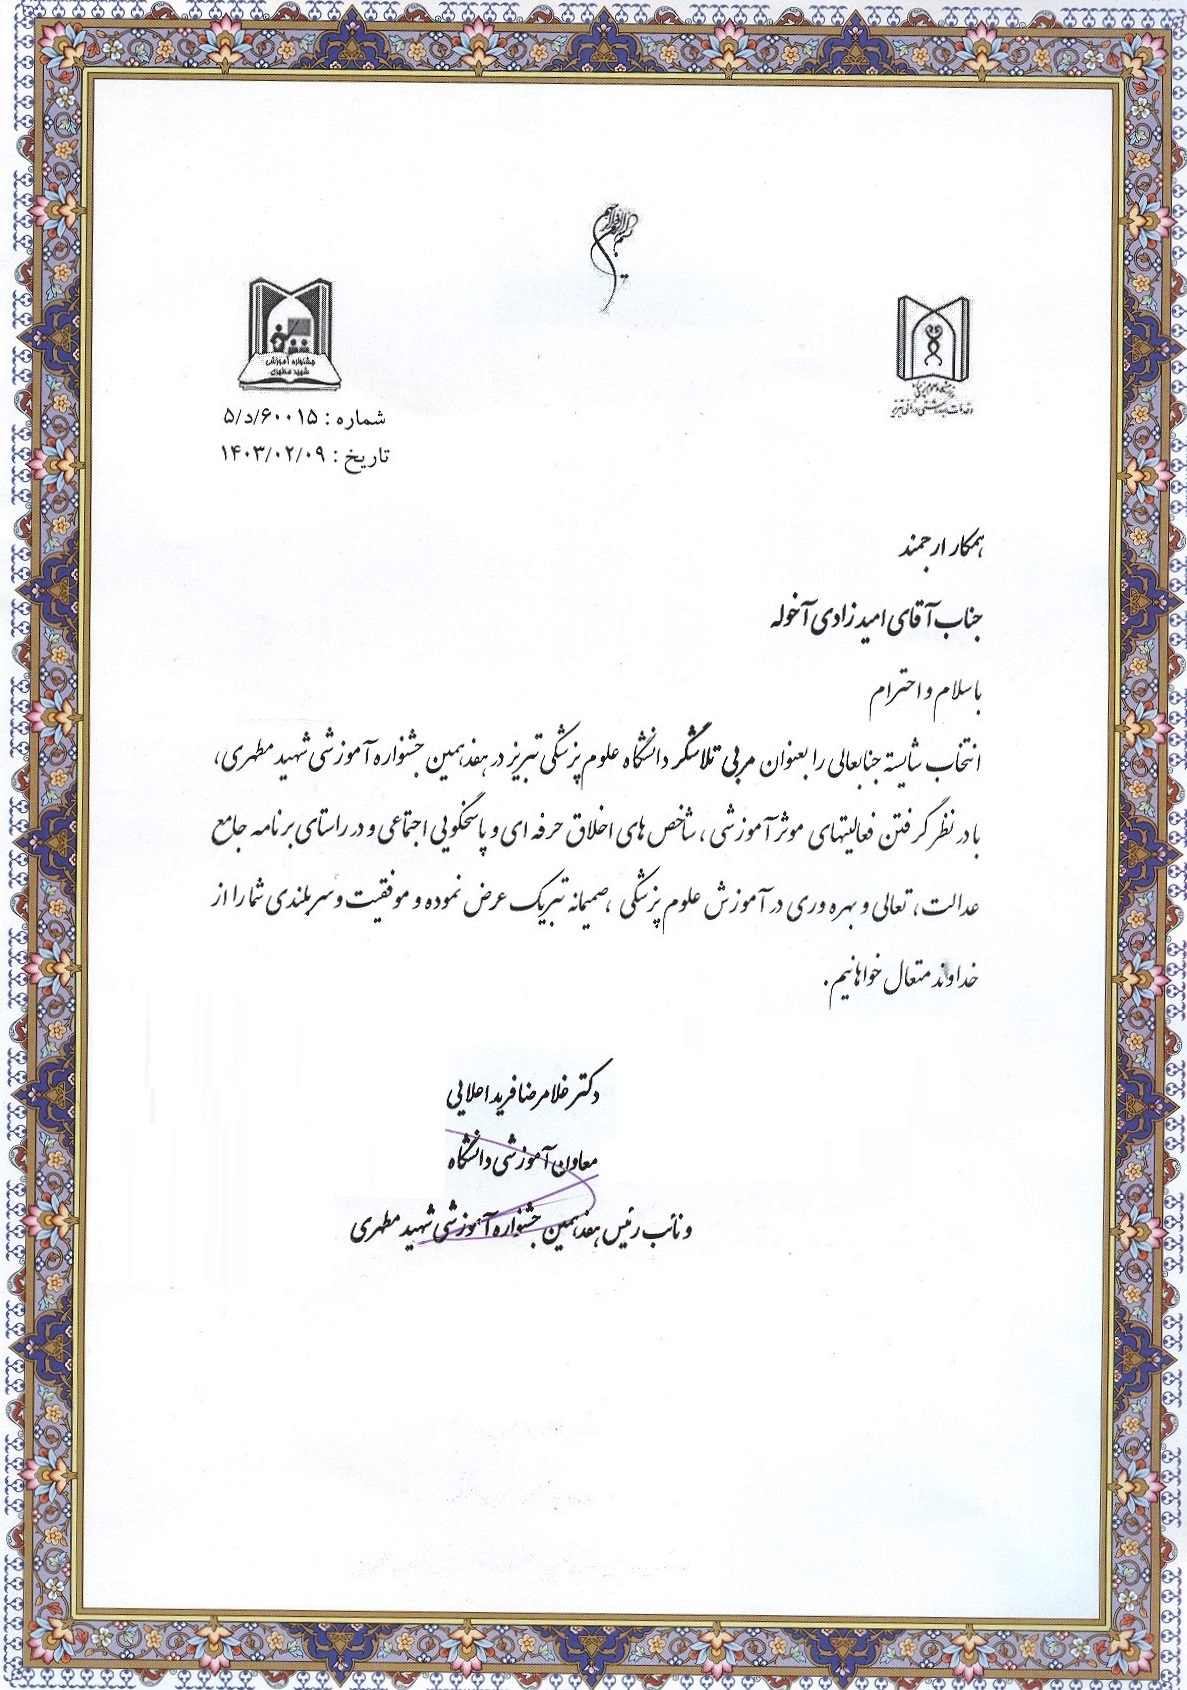 بسم الله الرحمن الرحیم
جشنواره آموزشی
شهید مطهری
دانشگاه علوم پزشکی
و خدمات بهداشتی درمانی تبریز
شماره : ۵/د/۶۰۰۱۵
تاریخ : ۱۴۰۳/۰۲/۰۹
همکار ارجمند
جناب آقای امید زادی آخوله
با سلام و احترام
انتخاب شایسته جنابعالی را بعنوان مربی تلاشگر دانشگاه علوم پزشکی تبریز در هفدهمین جشنواره آموزشی شهید مطهری،
با در نظر گرفتن فعالیتهای موثر آموزشی ، شاخص های اخلاق حرفه ای و پاسخگویی اجتماعی و در راستای برنامه جامع
عدالت، تعالی و بهره وری در آموزش علوم پزشکی ، صمیمانه تبریک عرض نموده و موفقیت و سربلندی شما را از
خداوند متعال خواهانیم.
دکتر غلامرضا فرید اعلایی
معاون آموزشی دانشگاه
و نائب رئیس هفدهمین جشنواره آموزشی شهید مطهری